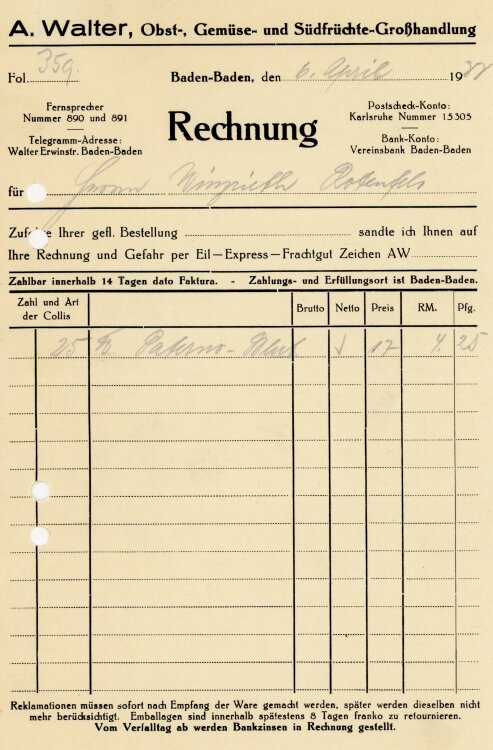 A. Walter, Obst-, Gemüse- und Südfrüchte-Großhandlung
Fol. 359. Baden-Baden, den 6. April 19
Fernsprecher
Nummer 890 und 891
Telegramm-Adresse:
Walter Erwinstr. Baden-Baden
Rechnung
Postscheck-Konto:
Karlsruhe Nummer 15305
Bank-Konto:
Vereinsbank Baden-Baden
für Herrn Rotenfels
Ihrer gefl. Bestellung sandte ich Ihnen auf
Ihre Rechnung und Gefahr per Eil—Express—Frachtgut Zeichen AW
Zahlbar innerhalb 14 Tagen dato Faktura. - Zahlungs- und Erfüllungsort ist Baden-Baden.
Zahl und Art
der Collis
Brutto Netto Preis RM. Pfg.
25 Paterno- 17 4. 25
Reklamationen müssen sofort nach Empfang der Ware gemacht werden, später werden dieselben nicht
mehr berücksichtigt. Emballagen sind innerhalb spätestens 8 Tagen franko zu retournieren.
Vom Verfalltag ab werden Bankzinsen in Rechnung gestellt.